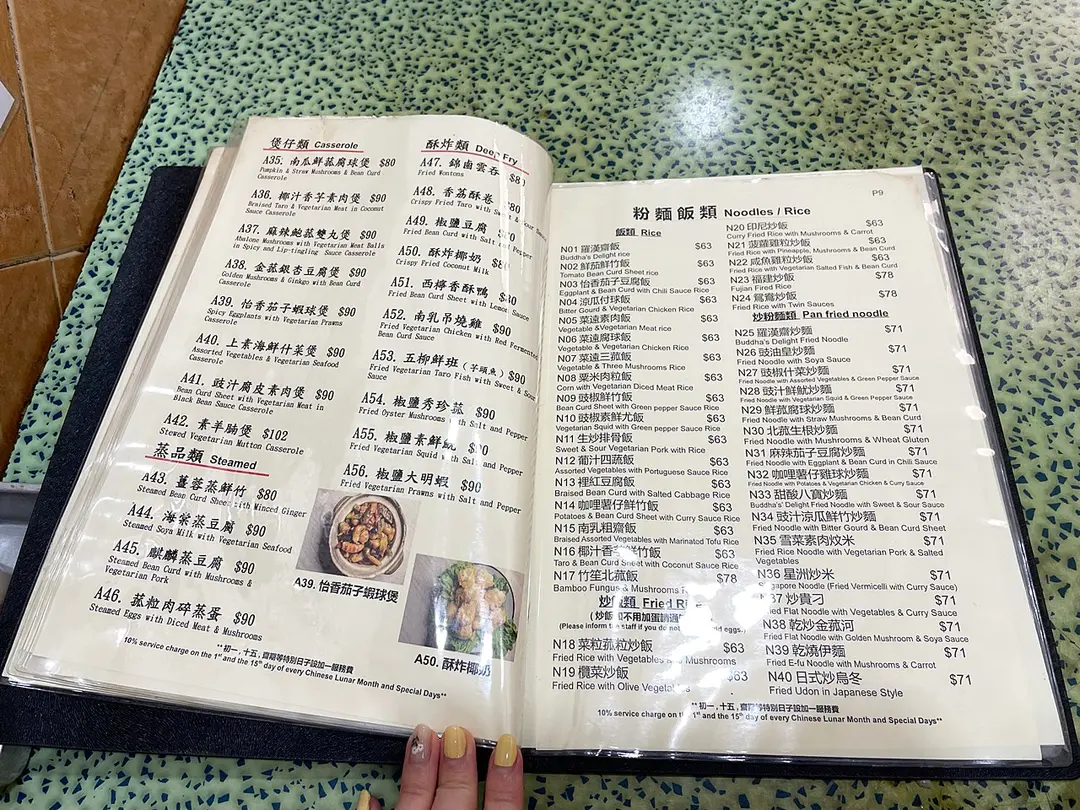 煲仔類 Casserole
A35. 南瓜鮮菇腐球煲 $80
Pumpkin & Straw Mushrooms & Bean Curd
Casserole
A36. 椰汁香芋素肉煲 $90
Braised Taro & Vegetarian Meat in Coconut
Sauce Casserole
A37. 麻辣鮑菇雙丸煲 $90
Abalone Mushrooms with Vegetarian Meat Balls
in Spicy and Lip-tingling Sauce Casserole
A38. 金菇銀杏豆腐煲 $90
Golden Mushrooms & Ginkgo with Bean Curd
Casserole
A39. 怡香茄子蝦球煲 $90
Spicy Eggplants with Vegetarian Prawns
Casserole
A40. 上素海鮮什菜煲 $90
Assorted Vegetables & Vegetarian Seafood
Casserole
A41. 豉汁腐皮素肉煲 $90
Bean Curd Sheet with Vegetarian Meat in
Black Bean Sauce Casserole
A42. 素羊腩煲 $102
Stewed Vegetarian Mutton Casserole
蒸品類 Steamed
A43. 薑蓉蒸鮮竹 $80
Steamed Bean Curd Sheet with Minced Ginger
A44. 海棠蒸豆腐 $90
Steamed Soya Milk with Vegetarian Seafood
A45. 麒麟蒸豆腐 $90
Steamed Bean Curd with Mushrooms &
Vegetarian Pork
A46. 菰粒肉碎蒸蛋 $90
Steamed Eggs with Diced Meat & Mushrooms
酥炸類 Deep Fry
A47. 錦鹵雲吞
Fried Wontons
A48. 香荔酥卷
Crispy Fried Taro with Sweet & Sour Sauce
A49. 椒鹽豆腐
Fried Bean Curd with Salt and Pepper
A50. 酥炸椰奶
Crispy Fried Coconut Milk
A51. 西檸香酥鴨
Fried Bean Curd Sheet with Lemon Sauce
A52. 南乳吊燒雞 $90
Fried Vegetarian Chicken with Red Fermented
Bean Curd Sauce
A53. 五柳鮮班（芋頭魚）$90
Fried Vegetarian Taro Fish with Sweet & Sour
Sauce
A54. 椒鹽秀珍菰 $90
Fried Oyster Mushrooms with Salt and Pepper
A55. 椒鹽素鮮魷 $90
Fried Vegetarian Squid with Salt and Pepper
A56. 椒鹽大明蝦 $90
Fried Vegetarian Prawns with Salt and Pepper
A39. 怡香茄子蝦球煲
A50. 酥炸椰奶
**初一，十五，齋期等特別日子設加一服務費
10% service charge on the 1st and the 15th day of every Chinese Lunar Month and Special Days**
P9
粉麵飯類 Noodles / Rice
飯類 Rice
N01 羅漢齋飯 $63
Buddha's Delight rice
N02 鮮茄鮮竹飯 $63
Tomato Bean Curd Sheet rice
N03 怡香茄子豆腐飯 $63
Eggplant & Bean Curd with Chili Sauce Rice
N04 涼瓜付球飯 $63
Bitter Gourd & Vegetarian Chicken Rice
N05 菜遠素肉飯 $63
Vegetable &Vegetarian Meat rice
N06 菜遠腐球飯 $63
Vegetable & Vegetarian Chicken Rice
N07 菜遠三菰飯 $63
Vegetable & Three Mushrooms Rice
N08 粟米肉粒飯 $63
Corn with Vegetarian Diced Meat Rice
N09 豉椒鮮竹飯 $63
Bean Curd Sheet with Green pepper Sauce Rice
N10 豉椒素鮮尤飯 $63
Vegetarian Squid with Green pepper Sauce Rice
N11 生炒排骨飯 $63
Sweet & Sour Vegetarian Pork with Rice
N12 葡汁四蔬飯 $63
Assorted Vegetables with Portuguese Sauce Rice
N13 裡紅豆腐飯 $63
Braised Bean Curd with Salted Cabbage Rice
N14 咖哩薯仔鮮竹飯 $63
Potatoes & Bean Curd Sheet with Curry Sauce Rice
N15 南乳粗齋飯 $63
Braised Assorted Vegetables with Marinated Tofu Rice
N16 椰汁香芋鮮竹飯 $63
Taro & Bean Curd Sheet with Coconut Sauce Rice
N17 竹笙北菰飯 $78
Bamboo Fungus & Mushrooms Rice
炒飯類 Fried Rice
(Please inform the staff if you do not need add eggs.)
N18 菜粒菰粒炒飯 $63
Fried Rice with Vegetables & Mushrooms
N19 欖菜炒飯 $63
Fried Rice with Olive Vegetables
N20 印尼炒飯 $63
Curry Fried Rice with Mushrooms & Carrot
N21 菠蘿雞粒炒飯 $63
Fried Rice with Pineapple, Mushrooms & Bean Curd
N22 咸魚雞粒炒飯 $63
Fried Rice with Vegetarian Salted Fish & Bean Curd
N23 福建炒飯 $78
Fujian Fired Rice
N24 鴛鴦炒飯 $78
Fired Rice with Twin Sauces
炒粉麵類 Pan fried noodle
N25 羅漢炒麵 $71
Buddha's Delight Fried Noodle
N26 豉油皇炒麵 $71
Fried Noodle with Soya Sauce
N27 豉椒什菜炒麵 $71
Fried Noodle with Assorted Vegetables & Green Pepper Sauce
N28 豉汁鮮魷炒麵 $71
Fried Noodle with Vegetarian Squid & Green Pepper Sauce
N29 鮮菰腐球炒麵 $71
Fried Noodle with Straw Mushrooms & Bean Curd
N30 北菰生根炒麵 $71
Fried Noodle with Mushrooms & Wheat Gluten
N31 麻辣茄子豆腐炒麵 $71
Fried Noodle with Eggplant & Bean Curd in Chili Sauce
N32 咖哩薯仔雞球炒麵 $71
Fried Noodle with Potatoes & Vegetarian Chicken & Curry Sauce
N33 甜酸八寶炒麵 $71
Buddha's Delight Fried Noodle with Sweet & Sour Sauce
N34 豉汁涼瓜鮮竹炒麵 $71
Fried Noodle with Bitter Gourd & Bean Curd Sheet
N35 雪菜素肉炆米 $71
Fried Rice Noodle with Vegetarian Pork & Salted
Vegetables
N36 星洲炒米 $71
Singapore Noodle (Fried Vermicelli with Curry Sauce)
N37 炒貴刁 $71
Fried Flat Noodle with Vegetables & Curry Sauce
N38 乾炒金菰河 $71
Fried Flat Noodle with Golden Mushroom & Soya Sauce
N39 乾燒伊麵 $71
Fried E-fu Noodle with Mushrooms & Carrot
N40 日式炒烏冬 $71
Fried Udon in Japanese Style
**初一，十五，齋期等特別日子設加一服務費
10% service charge on the 1st and the 15th day of every Chinese Lunar Month and Special Days**